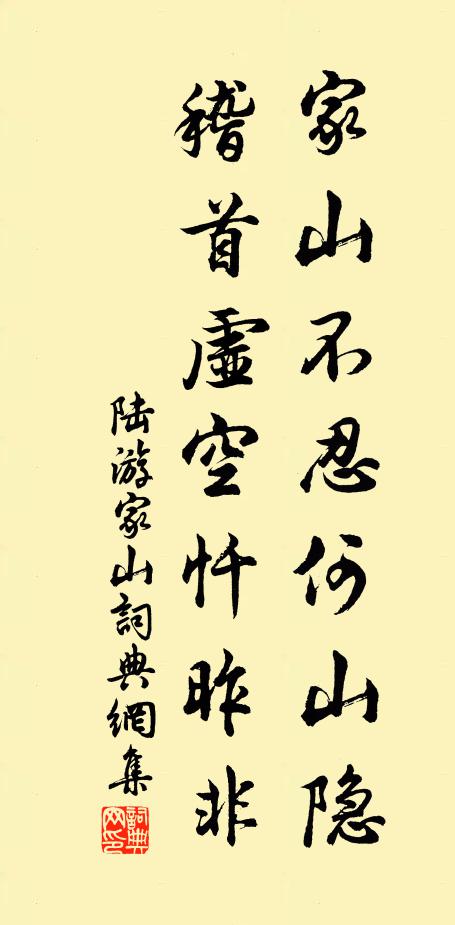 家山不忍何山隐
稽首虚空忏昨非
陆游家山詞典網集
詞典网印